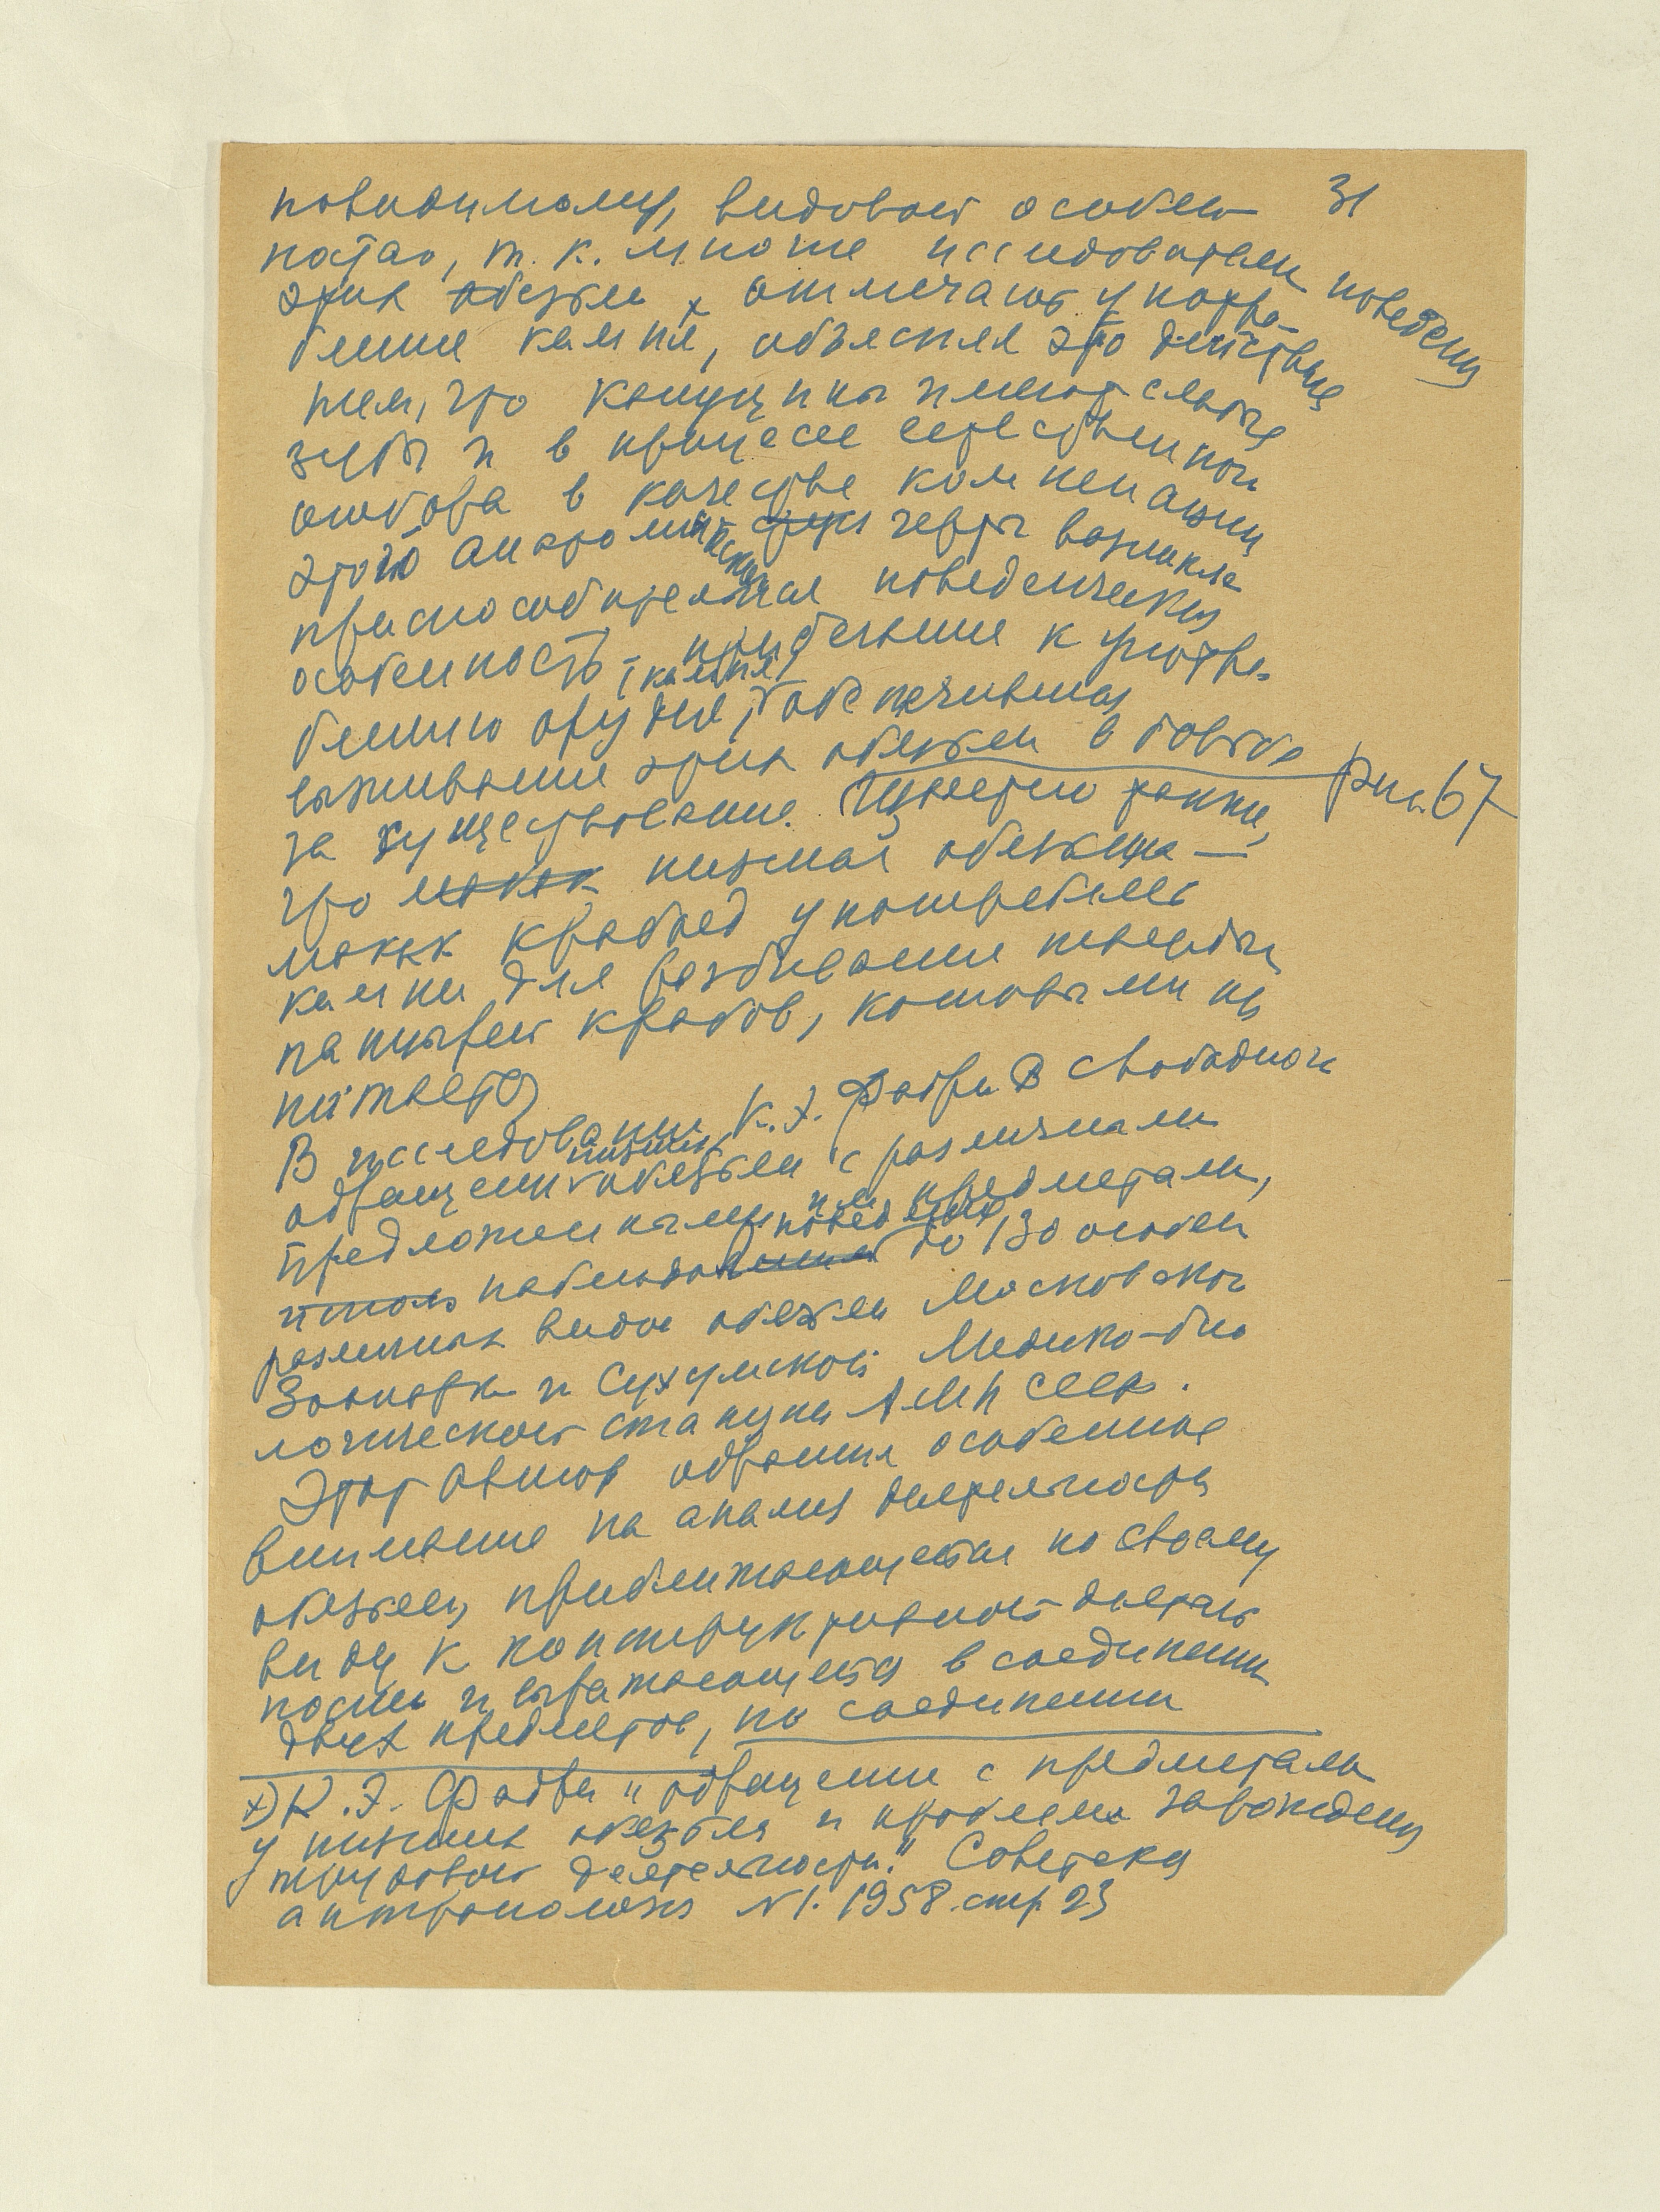 31
повидимому, видовой особен
ностью, т. к. многие исследователи поведения
этих обезьян отмечают употре-
бление камня, объясняя это действие
тем, что капуцины имеют слабые
зубы и в процессе естественного
отбора в качестве компенсации
этой анатомической черты возникла
приспособительная поведенческая
особенность - прибегание к употре-
блению орудия, (камня) обеспечившая
выживание этих обезьян в борьбе рис. 67
за существование. Известно также,
что макак низшая обезьяна —
макак крабоед употребляет
камни для разбивания твердых
панцырей крабов, которыми он
питается
В исследовании К. Э. Фабри В свободном
обращении низших обезьян с различными
предложенными им предметами,
наблюдал поведение до 130 особей
различных видов обезьян Московского
Зоопарка и Сухумской Медико-био
логической станции АМН СССР.
Этот автор обратил особенное
внимание на анализ деятельности
обезьян, приближающейся по своему
виду к конструктивной деятель
ности и выражающейся в соединении
двух предметов, но соединении
х) К. Э. Фабри "обращение с предметами
у низших обезьян и проблема зарождения
трудовой деятельности." Советская
антропология N 1. 1958. стр 23